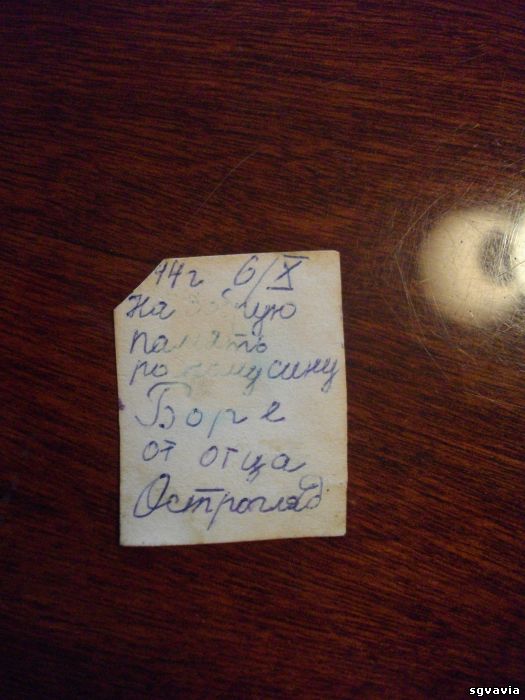 44г 6/X
На добрую
память
родному сину
Боре
от отца
Острогляд
sgvavia